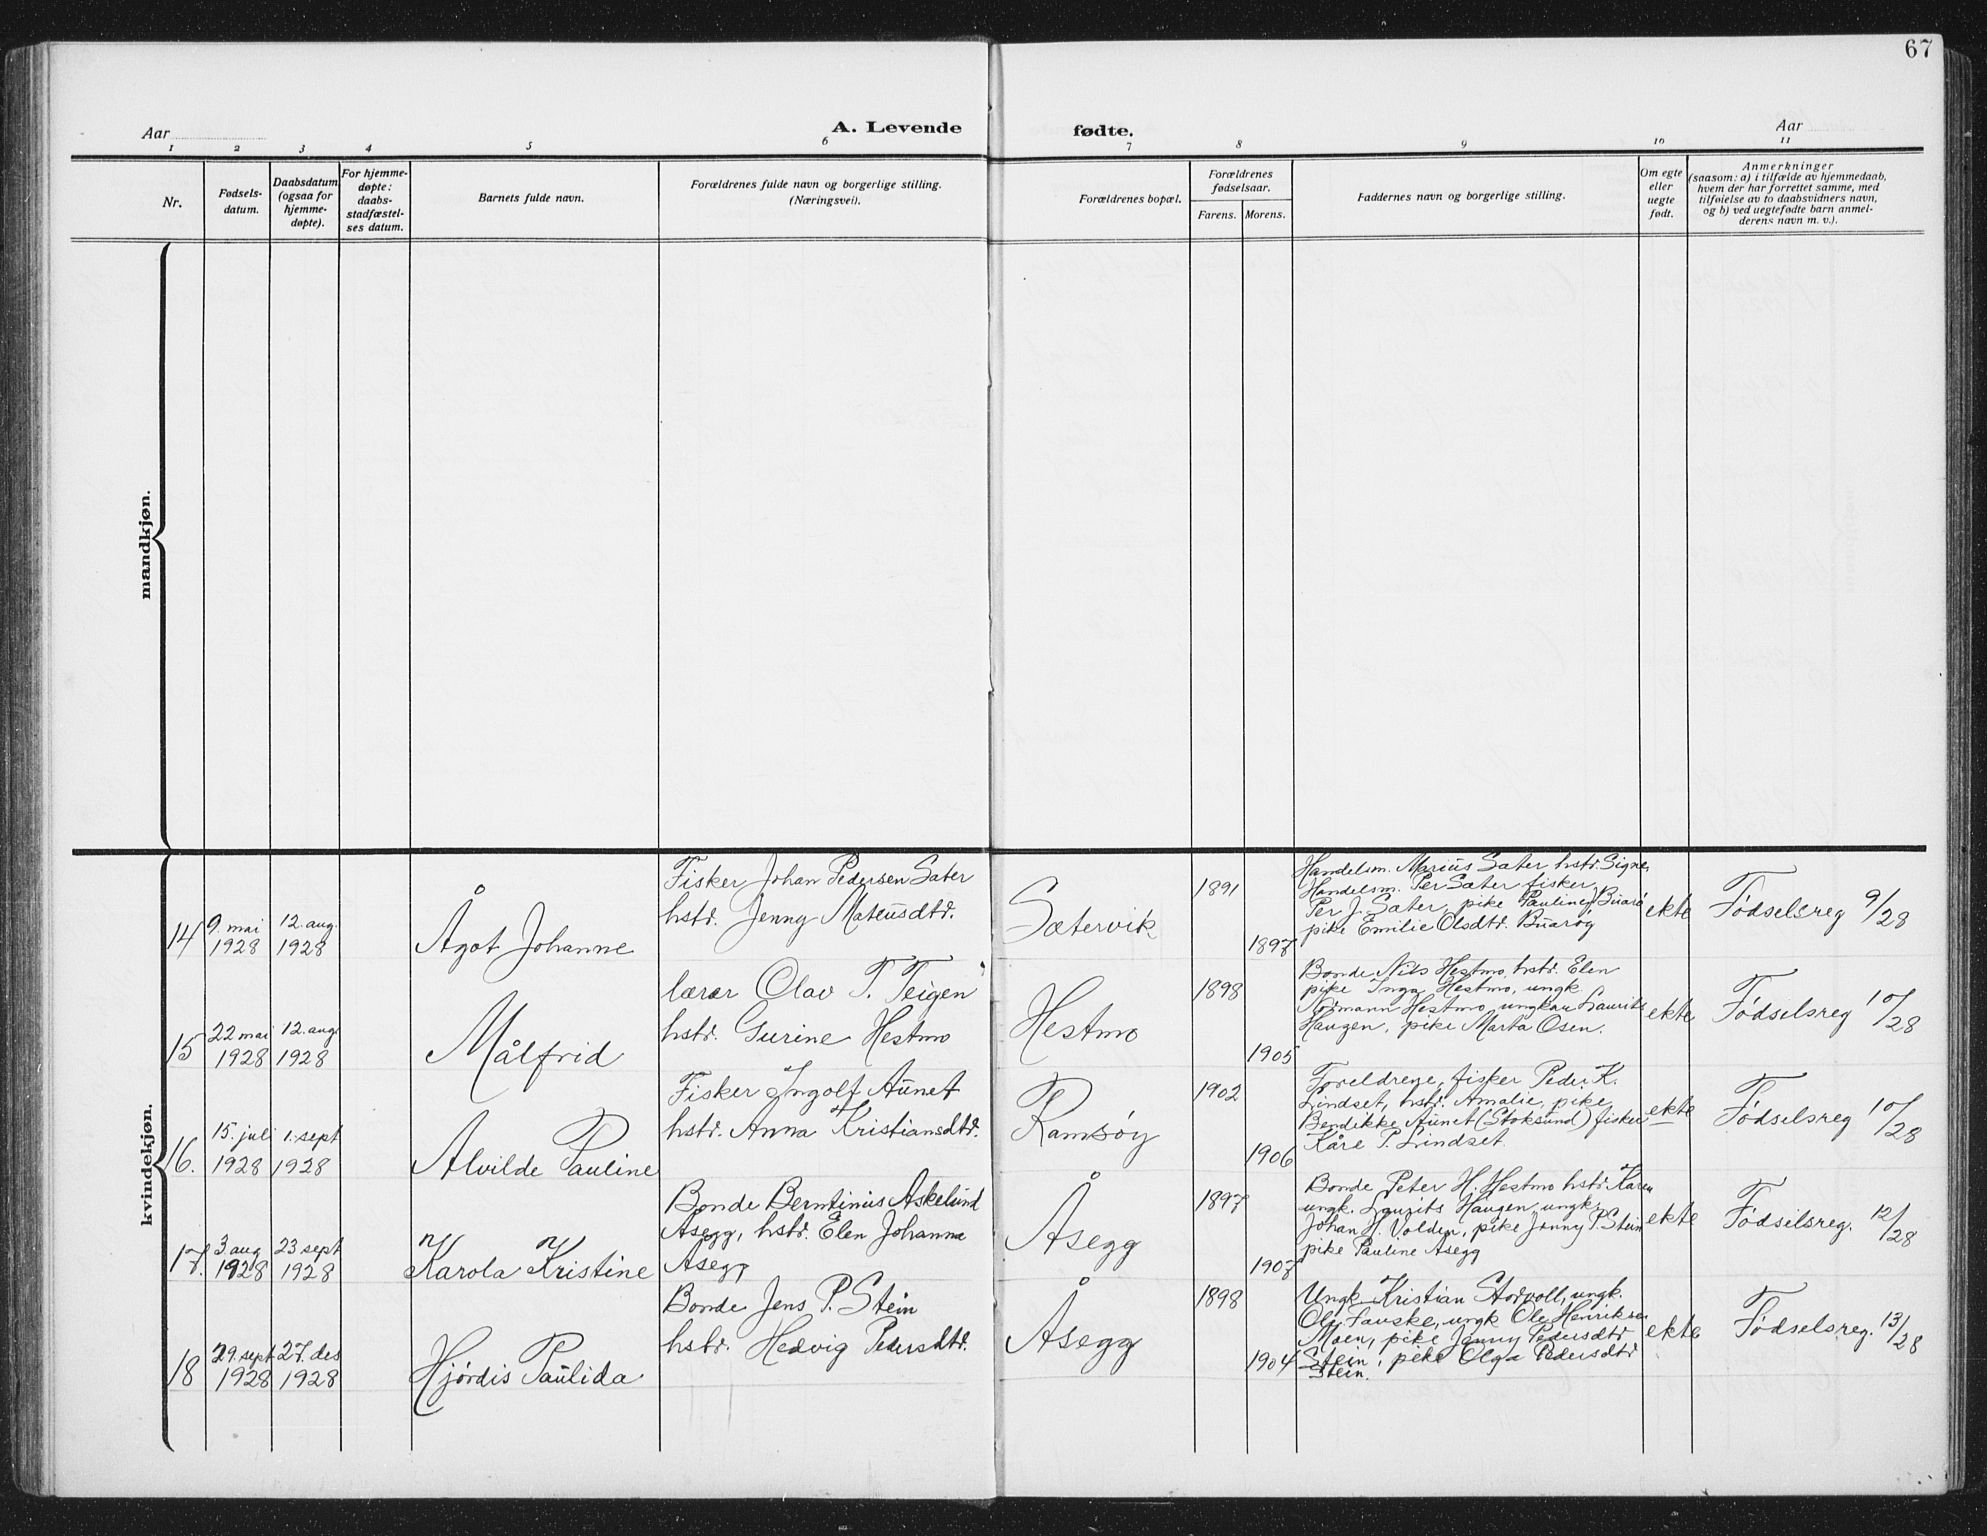 67
Aar
A. Levende
fødte.
Aar
1 2 3 4 5 6 7 8 9 10 11
Nr.
Fødsels-
datum.
Daabsdatum
(ogsaa for
hjemme-
døpte).
For hjemme-
døpte:
daabs-
stadfæstel-
ses datum.
Barnets fulde navn.
Forældrenes fulde navn og borgerlige stilling.
(Næringsvei).
Forældrenes bopæl.
Forældrenes
fødselsaar.
Farens. Morens.
Faddernes navn og borgerlige stilling.
Om egte
eller
uegte
født.
Anmerkninger
(saasom: a) i tilfælde av hjemmedaab,
hvem der har forrettet samme, med
tilføielse av to daabsvidners navn,
og b) ved uegtefødte barn anmel-
derens navn m. v.).
mandkjøn.
kvindekjøn.
14
9. mai
1928
12. aug.
1928
Ågot Johanne
Fisker Johan Pedersen Sater
hstr. Jenny Mateusdtr.
Sætervik
1891
1897
Handelsm. Marius Sater hstr. Signe,
Handelsm. Per Sater fisker
Per J. Sater, pike Pauline Buarø
pike Emilie Olsdtr. Buarøy
ekte
Fødselsreg 9/28
15
22 mai
1928
12. aug.
1928
Målfrid
lærer Olav T. Teigen
hstr. Gurine Hestmo
Hestmo
1898
1905
Bonde Nils Hestmo, hstr. Elen
pike Inga Hestmo, ungk.
Normann Hestmo, ungkar Laurits
Haugen, pike Marta Osen.
ekte
Fødselsreg 10/28
16.
15. juli
1928
1. sept
1928
Alvilde Pauline
Fisker Ingolf Aunet
hstr. Anna Kristiansdtr.
Ramsøy
1902
1906
Foreldrene, fisker Peder K.
Lindset, hstr. Amalie, pike
Bendikke Aunet (Stoksund) fisker
Kåre P. Lindset.
ekte
Fødselsreg 10/28
17.
3 aug
1928
23 sept
1928
Karola Kristine
Bonde Berntinius Askelund
Asegg, hstr. Elen Johanna
Asegg
Åsegg
1897
1903
Bonde Peter H. Hestmo hstr. Karen
ungk. Laurits Haugen, ungk.
Johan H. Volden, pike Jonny P. Stein
pike Pauline Asegg
ekte
Fødselsreg. 12/28
18
29. sept
1928
27. des
1928
Hjørdis Paulida
Bonde Jens P. Stein
hstr. Hedvig Pedersdtr.
Åsegg
1898
1904
Ungk Kristian Storvoll, ungk.
Ole Fauske, ungk Ole Henriksen
Moen, pike Jenny Pedersdtr
Stein, pike Olga Pedersdtr
Stein.
ekte
Fødselsreg. 13/28